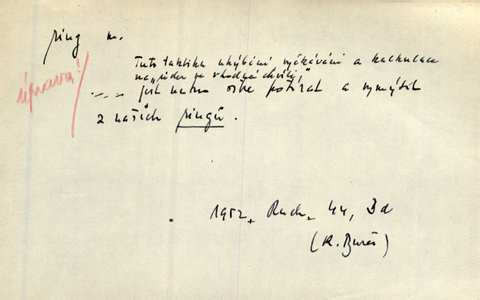 ring m.
úprava!
Tuto taktiku uhýbání vyčkávání a kalkulace
na „úder ve vhodné chvíli,“
.... jest nutno ostře potírat a vymýtit
z našich ringů.
1952, Ruch, 44, Bd
(K. Bureš)